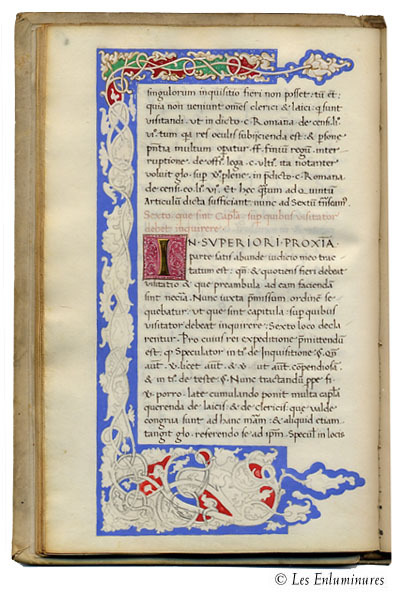 singulorum inquisitio fieri non posset: tm̄ et:
quia non veniunt om̄es clerici & laici: q̄ sunt
visitandi. ut in dicto. c. Romana. de censi. lī.
vi. tum qa res oculis subijcienda est: & psone
pn̄tia multum opatur. ff. finiū regū. in ter-
ruptione. de offi. lega. c. ulti. ita notanter
voluit glo. sup. v. plene. in pdicto. c. Romana.
de censi. eo. li. vi. Et hec q̄tum ad quintū
Articulū dicta sufficiant nunc ad Sextū
Sexto. que sint Capla. sup quibus visitator
debet inquirere.
IN SVPERIORI PROXIA.
parte satis abunde iudicio meo trac
tatum est: qn̄. & quotiens fieri debeat
visitatio & que preambula ad eam faciendā
sint nec̄ia. Nunc iuxta p̄missum ordinē se-
quebatur. ut que sint capitula. sup quibus
visitator debeat inquirere. Sexto loco decla
rentur. Pro cuius rei expeditione p̄mittendū
est: q Speculator in ti. de Inquisitione. §. Qn̄
aut̄. v. licet aut̄. & v. ut aut̄. copendiosa.
& in ti. de teste. §. Nunc tractandū. ppe fi.
v. porro. late cumulando ponit multa capl̄a
querenda de laicis: & de clericis. que valde
congrua sunt ad hanc mām: & aliquid etiam
tangit glo. referendo se ad ipm̄. Specul. in locis
© Les Enluminures